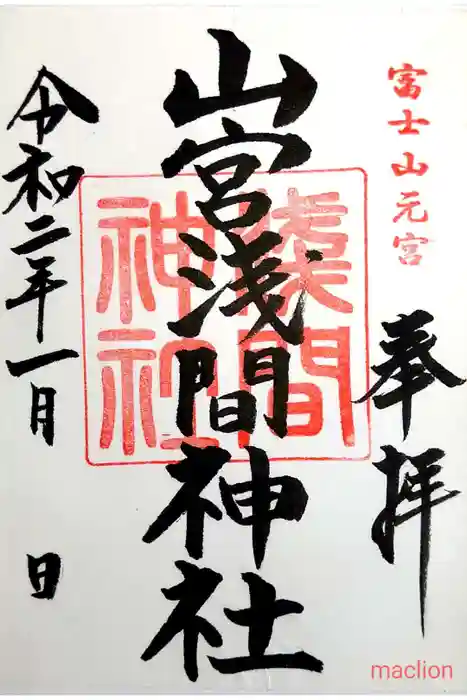 富士山元宮
奉拝
山宮浅間神社
淺間神社
令和二年一月 日
maclion